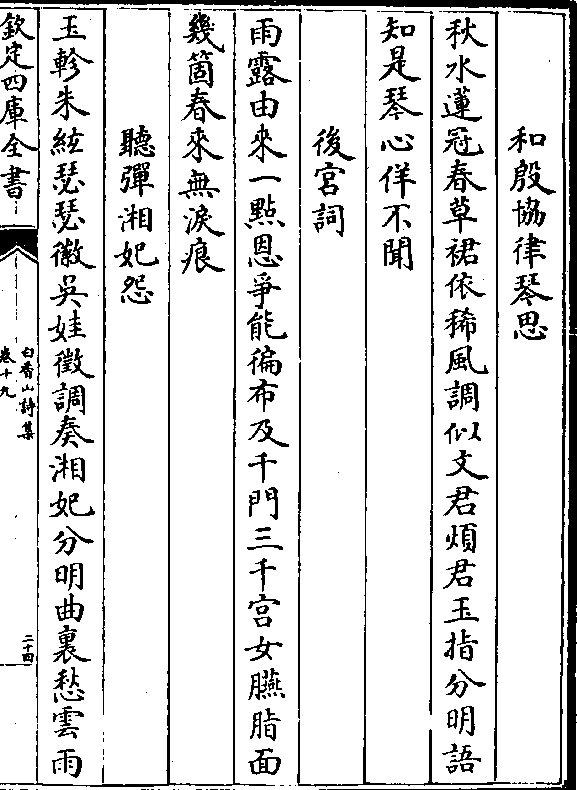 和殷協律琴思
秋水蓮冠春草裙依稀風調似文君煩君玉指分明語
知是琴心佯不聞
後宮詞
雨露由來一點恩爭能徧布及千門三千宮女臙脂面
幾箇春來無淚痕
聽彈湘妃怨
玉軫朱絃瑟瑟徽吳娃徵調奏湘妃分明曲裏愁雲雨
欽定四庫全書
白香山詩集
卷十九
二十四